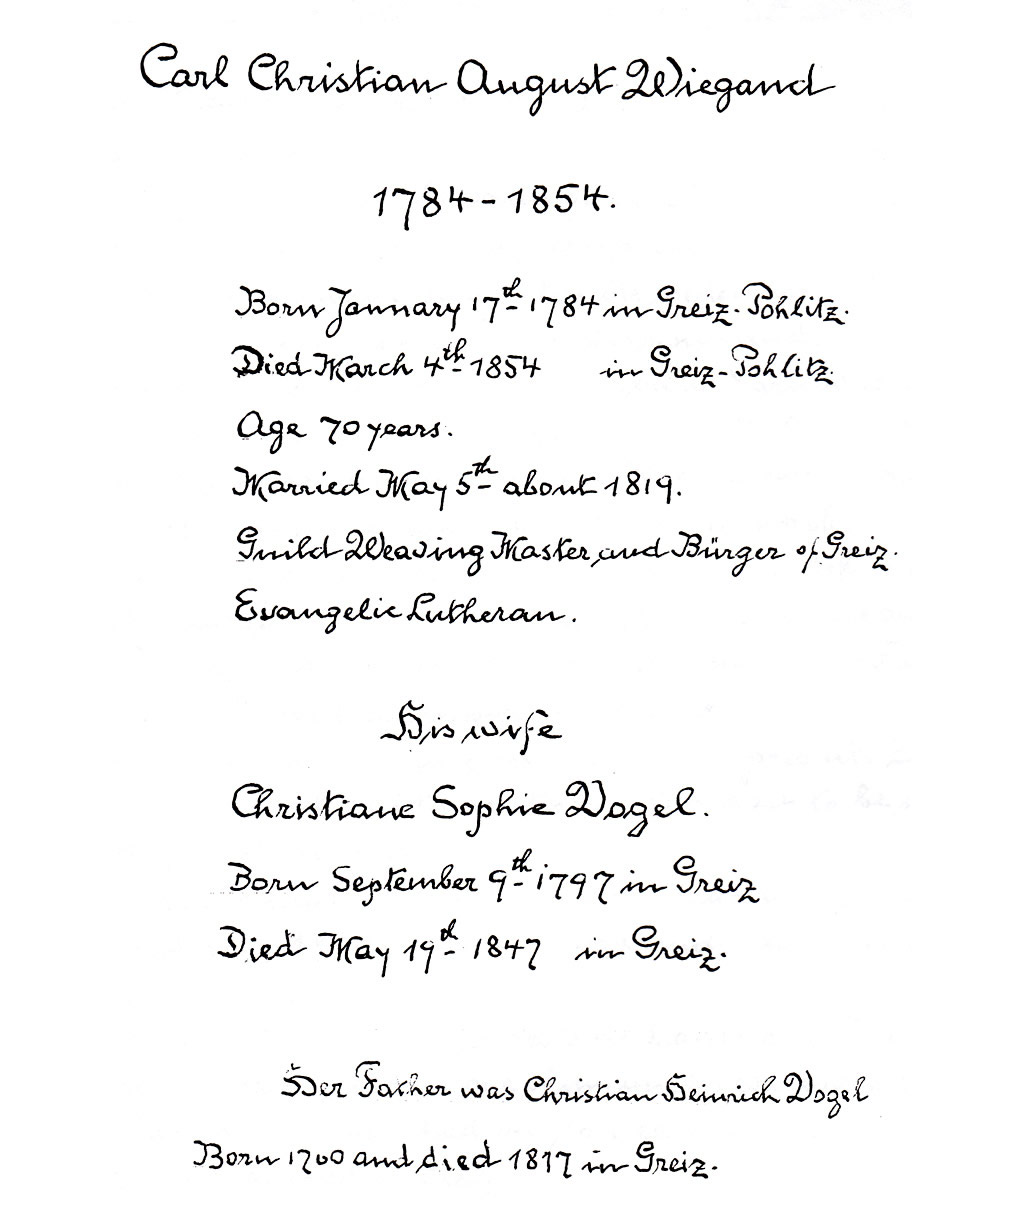 Carl Christian August Wiegand
1784-1854.
Born January 17th 1784 in Greiz-Pohlitz.
Died March 4th 1854 in Greiz-Pohlitz.
Age 70 years.
Married May 5th about 1819.
Guild Weaving Master, and Bürger of Greiz.
Evangelic Lutheran.
His wife
Christiane Sophie Vogel.
Born September 9th 1797 in Greiz
Died May 19th 1847 in Greiz.
Her Father was Christian Heinrich Vogel
Born 1700 and died 1817 in Greiz.